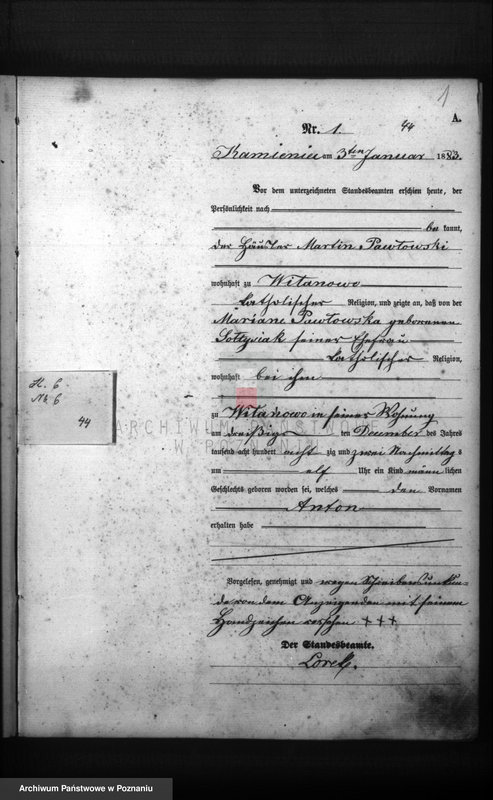 1
A.
Nr. 1. 44
Kamieniec am 3ten Januar 1883.
Vor dem unterzeichneten Standesbeamten erschien heute, der
Persönlichkeit nach
be kannt,
der Häusler Martin Pawłowski
wohnhaft zu Witanowo
katholischer Religion, und zeigte an, daß von der
Mariane Pawłowska geborenen
Sołtysiak seiner Ehefrau
katholischer Religion,
wohnhaft bei ihm
H. 6
Nr. 6
44
zu Witanowo in seiner Wohnung
ARCHIWUM PAŃSTWOWE
W POZNANIU
am dreißigsten ten December des Jahres
tausend acht hundert acht zig und zwei Nachmittags
um elf Uhr ein Kind männ lichen
Geschlechts geboren worden sei, welches den Vornamen
Anton
erhalten habe
Vorgelesen, genehmigt und wegen Schreibensunkun-
de von dem Anzeigenden mit seinem
Handzeichen versehen +++
Der Standesbeamte.
Archiwum Państwowe w Poznaniu